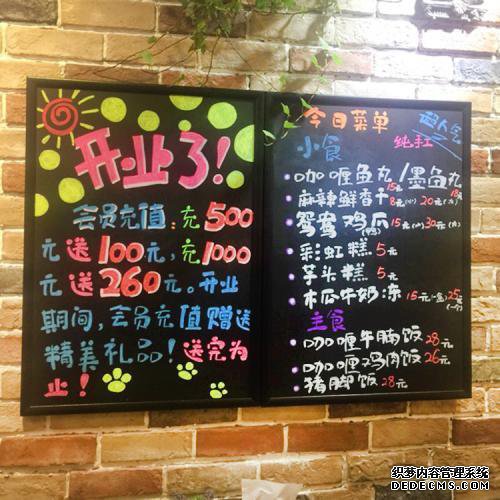 开业了!
会员充值:充500
元送100元,充1000
元送260元。开业
期间,会员充值赠送
精美礼品!送完为
止!
今日菜单
小食 纯手工
咖喱鱼丸/墨鱼丸
15元 18元
麻辣鲜香干 8元(小) 20元(大)
鸳鸯鸡爪 15元(小) 30元(大)
彩虹糕 5元
芋头糕 5元
木瓜牛奶冻 15元(一盒) 25元(一个)
主食
咖喱牛腩饭 28元
咖喱鸡肉饭 26元
猪脚饭 28元
织梦内容管理系统
DEDECMS.COM